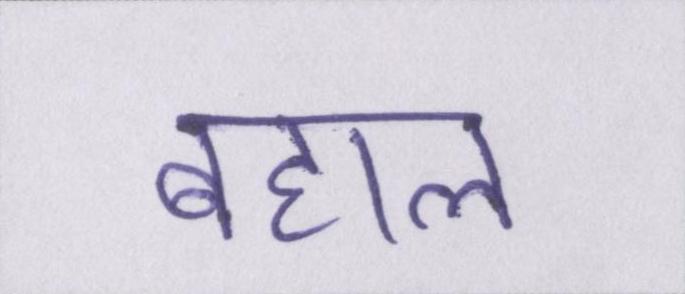 बहाल